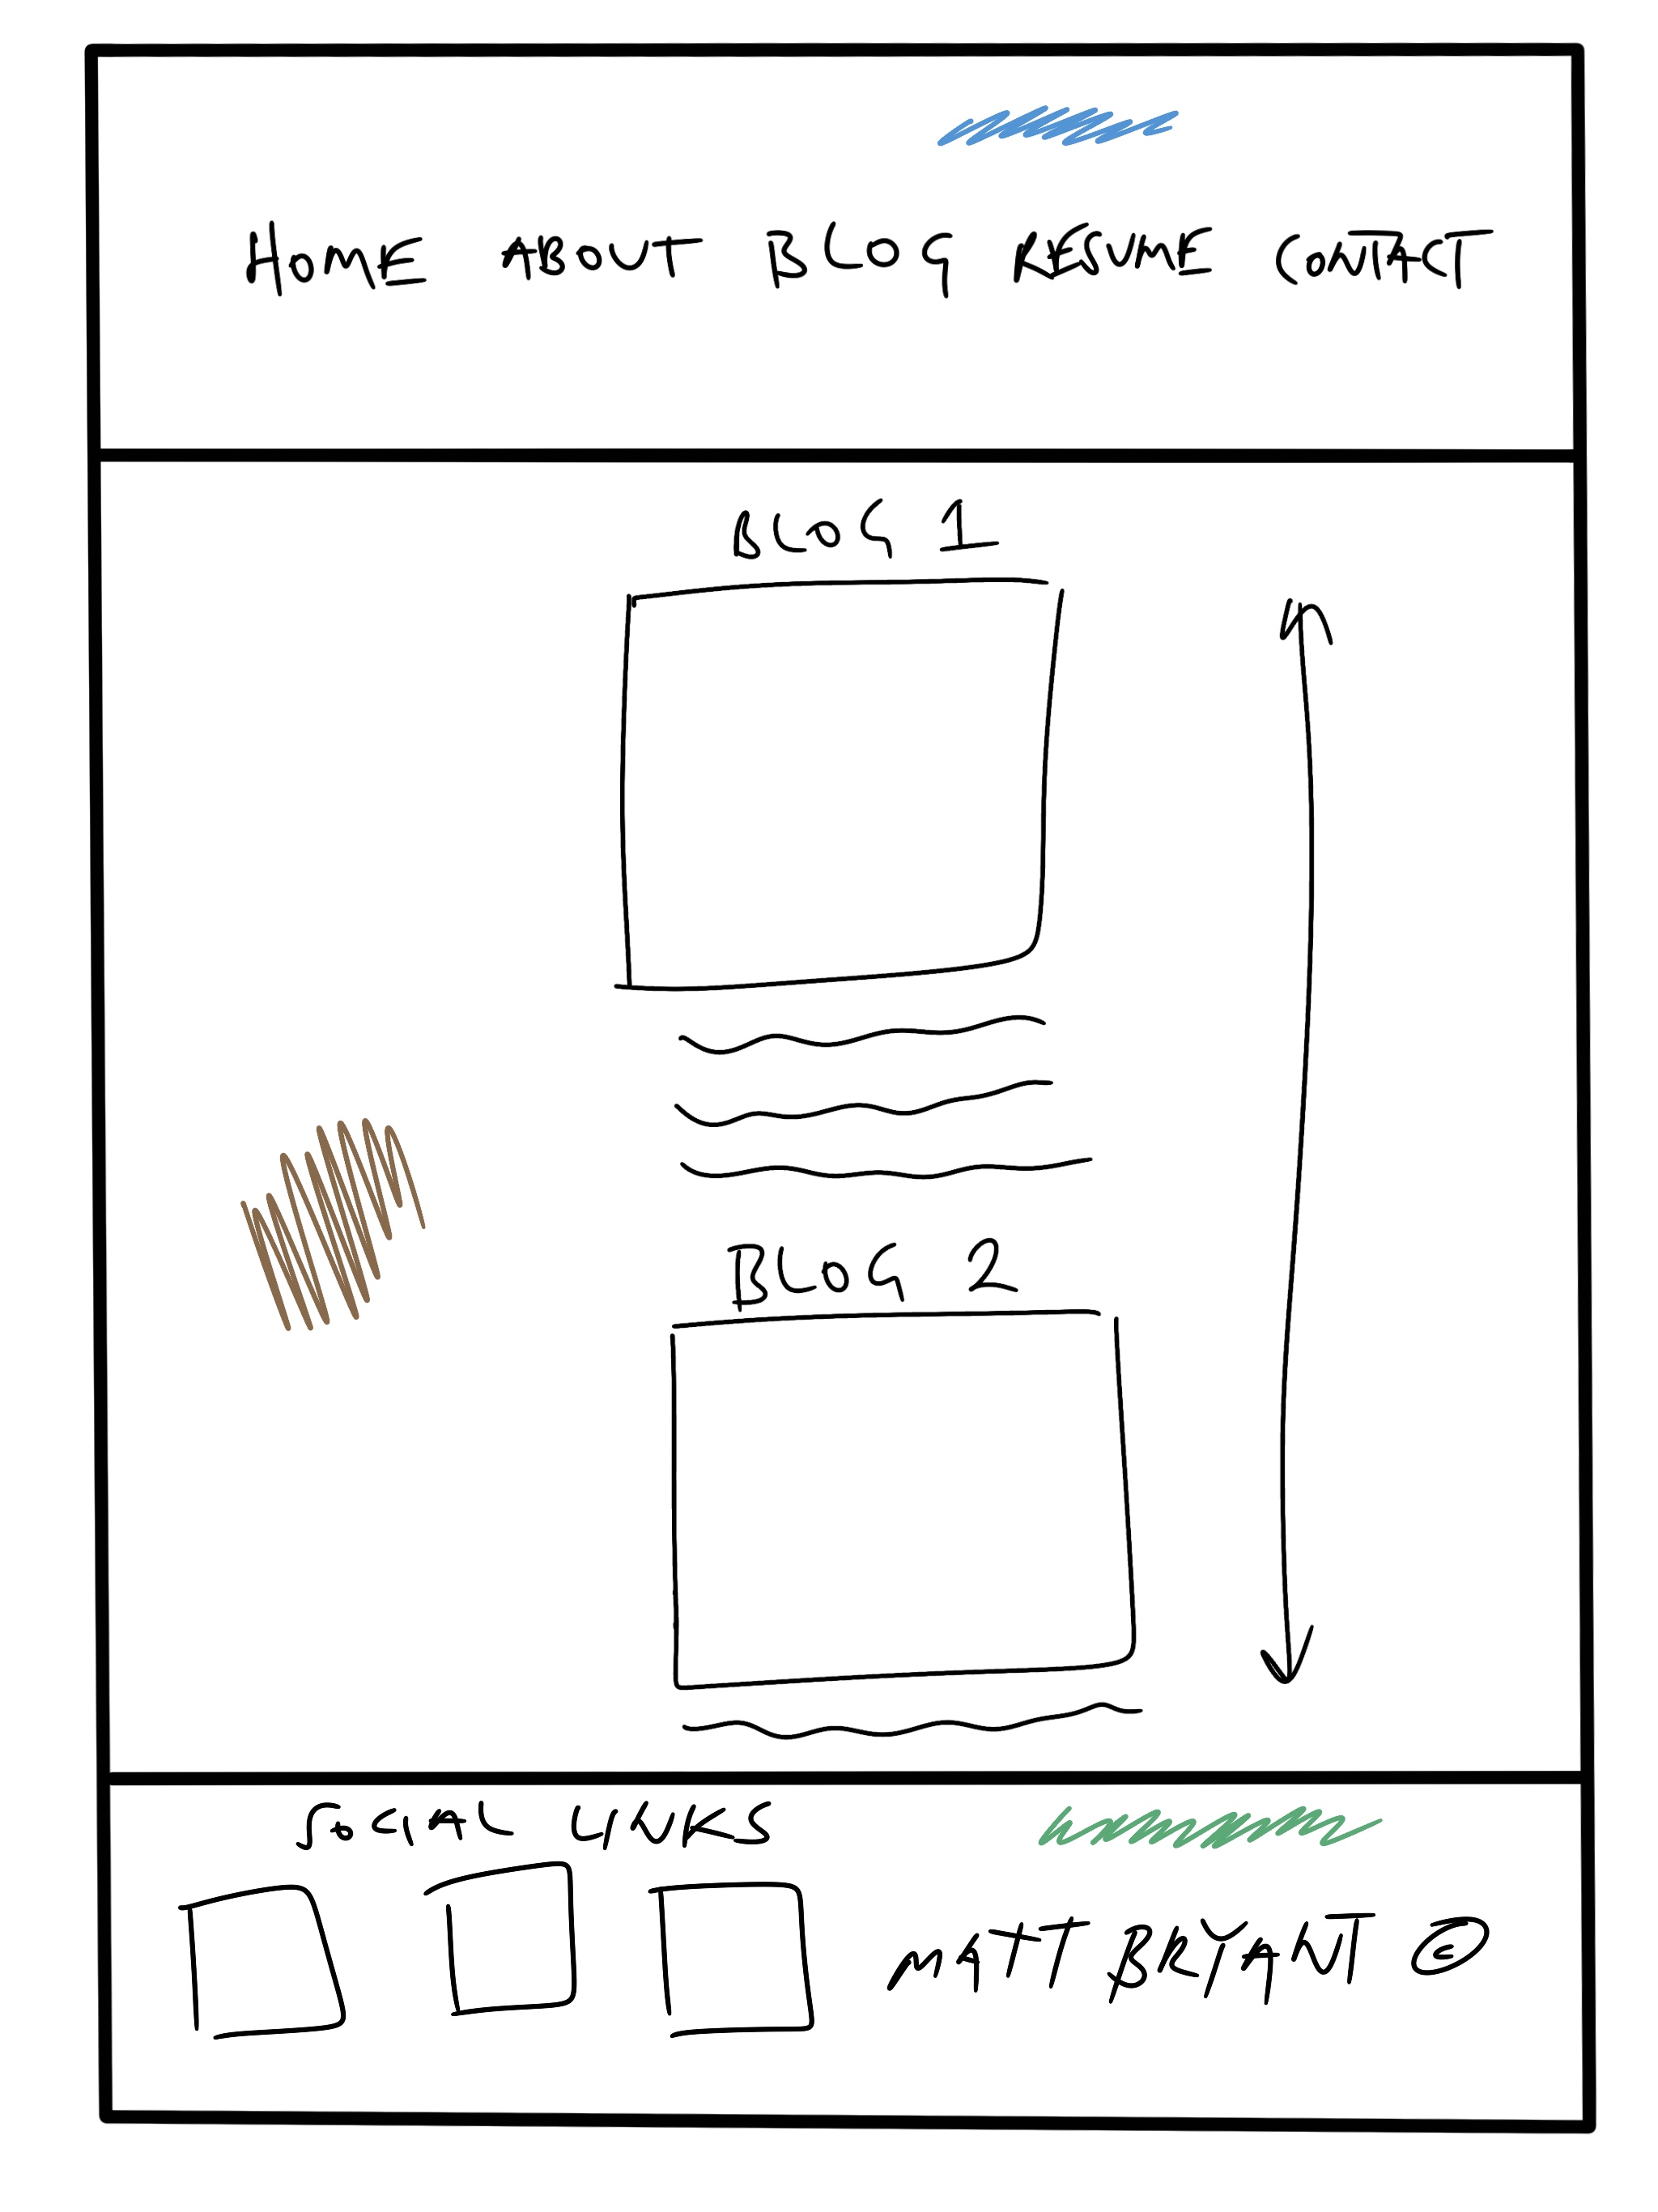 HOME ABOUT BLOG RESUME CONTACT
BLOG 1
BLOG 2
SOCIAL LINKS
MATT BRYANT ©